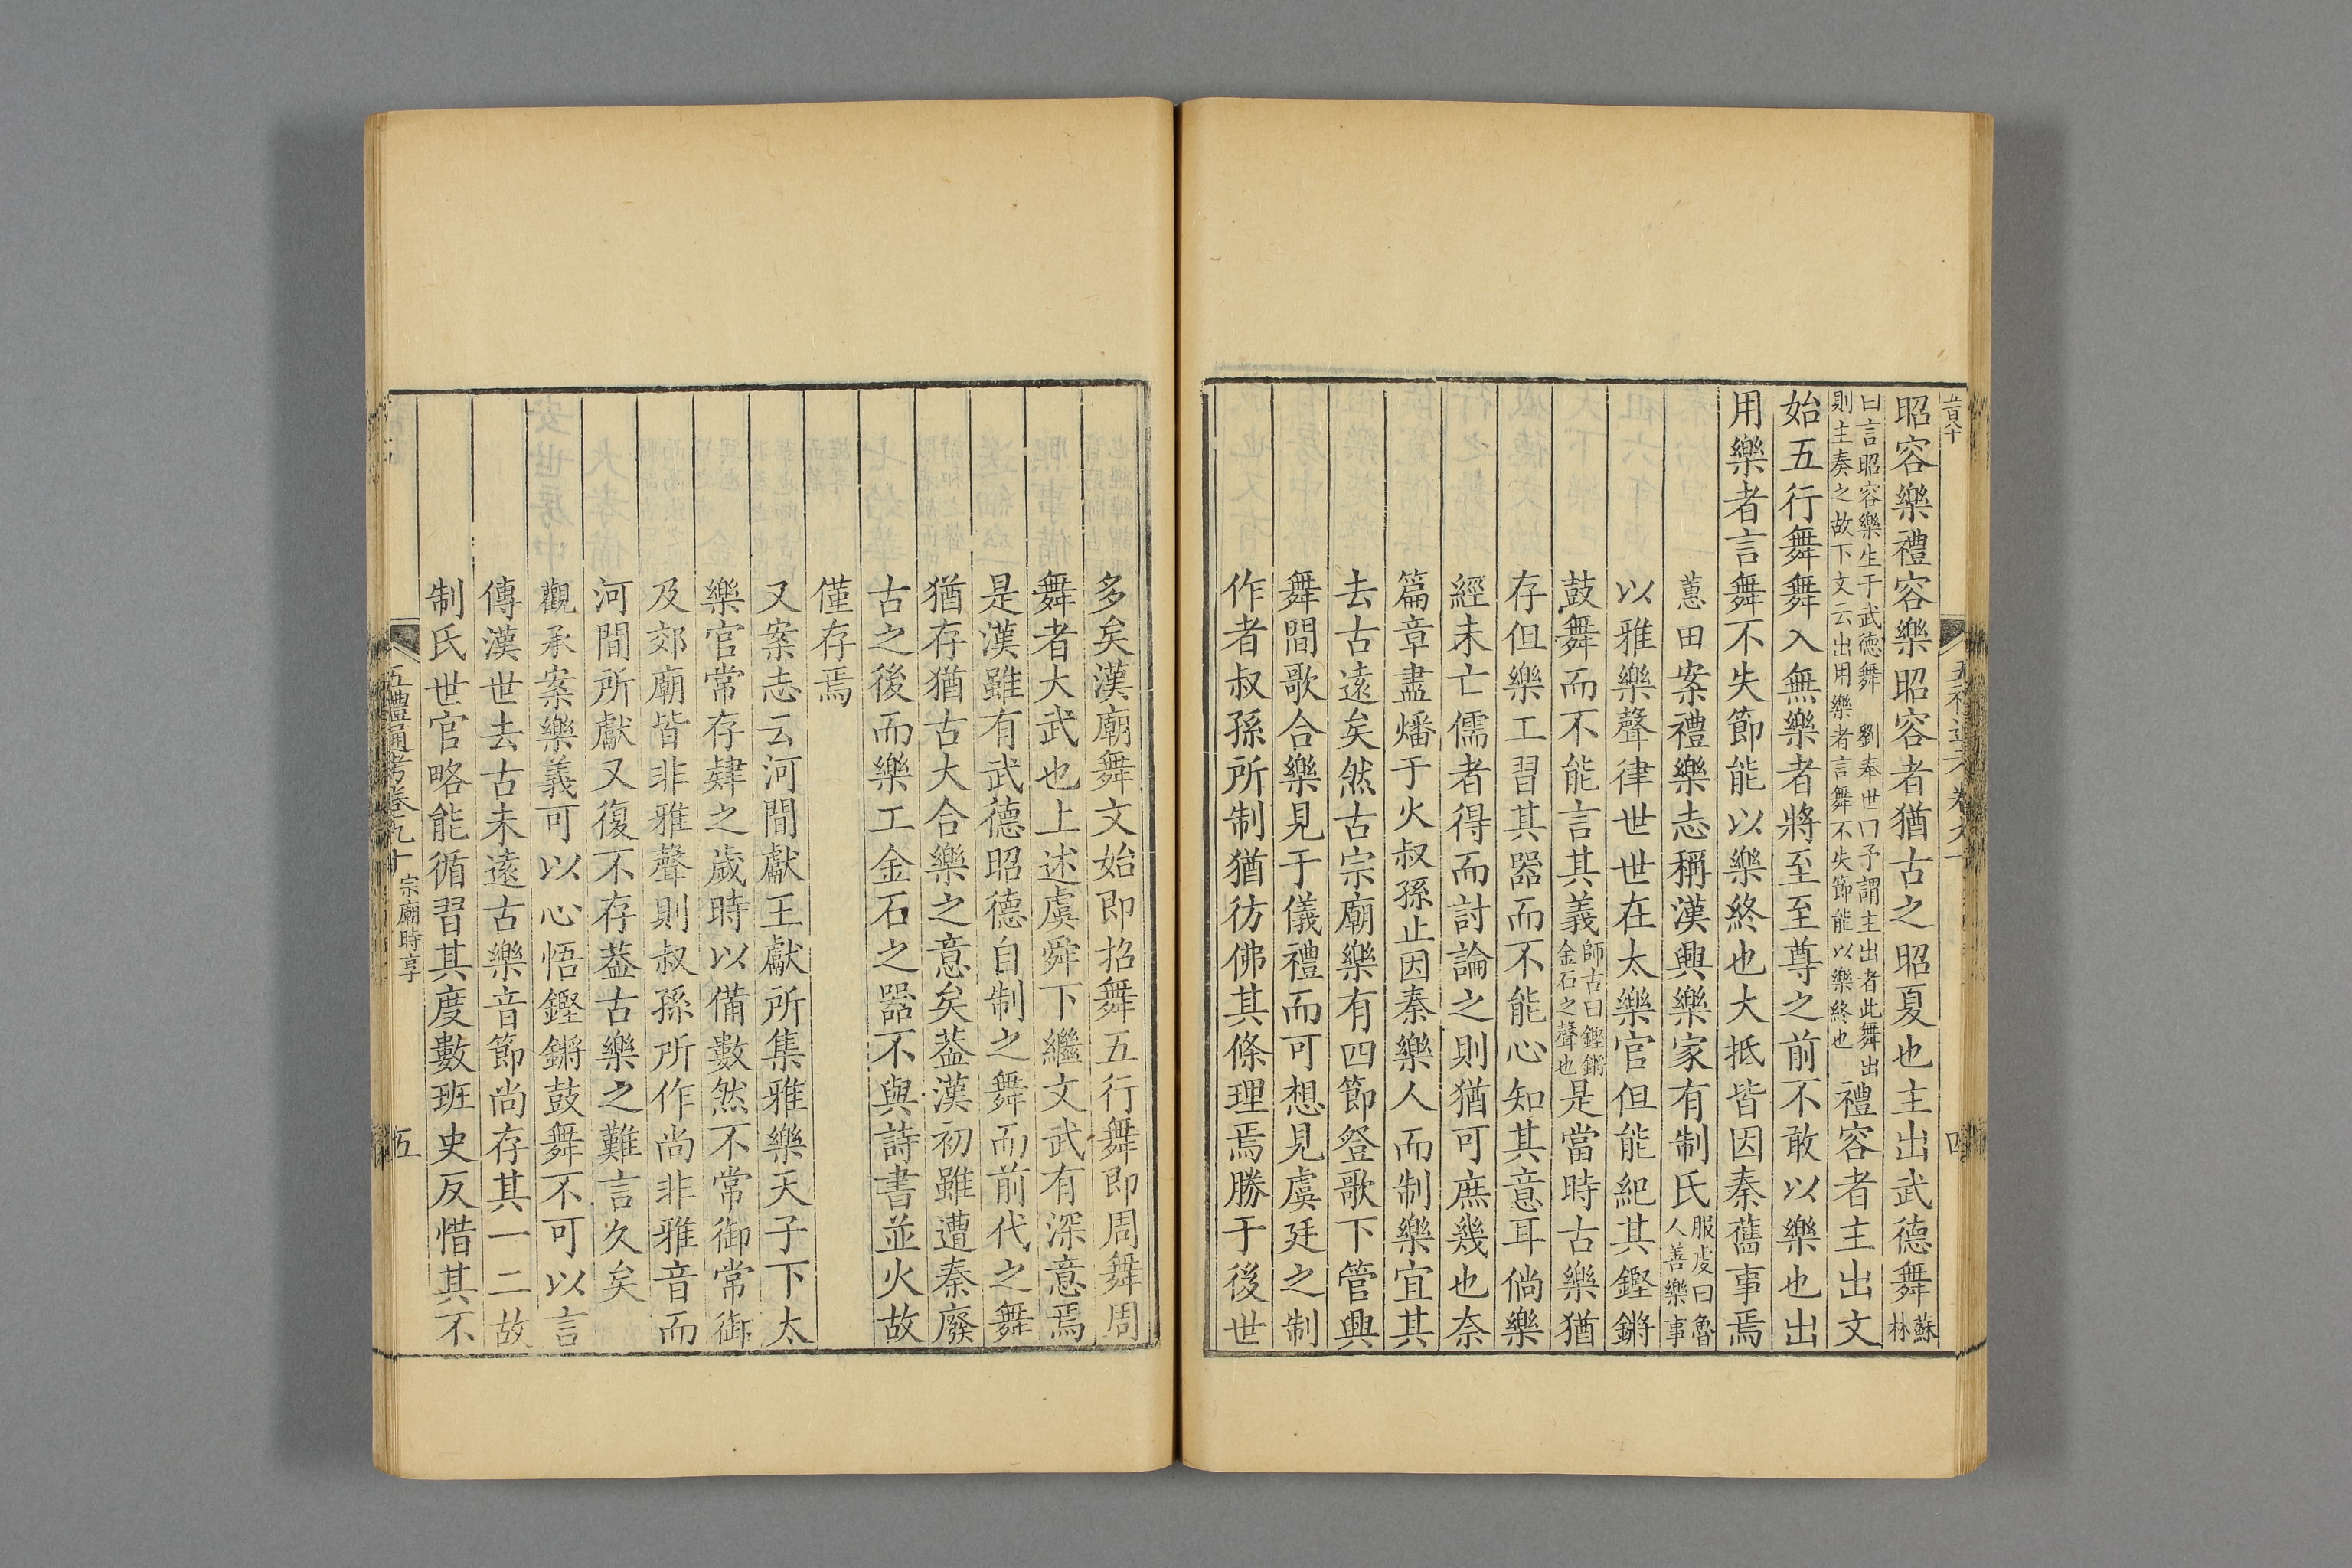 昭容樂禮容樂昭容者猶古之昭夏也主出武德舞蘇林
曰言昭容樂生于武德舞　劉奉世曰予謂主出者此舞出則主奏之故下文云出用樂者言舞不失節能以樂終也禮容者主出文
始五行舞舞入無樂者將至至尊之前不敢以樂也出
用樂者言舞不失節能以樂終也大抵皆因秦舊事焉
蕙田案禮樂志稱漢興樂家有制氏服虔曰魯人善樂事
以雅樂聲律世世在太樂官但能紀其鏗鏘
鼓舞而不能言其義師古曰鏗鏘金石之聲也是當時古樂猶
存但樂工習其器而不能心知其意耳倘樂
經未亡儒者得而討論之則猶可庶幾也奈
篇章盡燔于火叔孫止因秦樂人而制樂宜其
去古遠矣然古宗廟樂有四節登歌下管興
舞間歌合樂見于儀禮而可想見虞廷之制
作者叔孫所制猶彷佛其條理焉勝于後世
多矣漢廟舞文始即招舞五行舞即周舞周
舞者大武也上述虞舜下繼文武有深意焉
是漢雖有武德昭德自制之舞而前代之舞
猶存猶古大合樂之意矣葢漢初雖遭秦廢
古之後而樂工金石之器不與詩書並火故
僅存焉
又案志云河間獻王獻所集雅樂天子下太
樂官常存肄之歲時以備數然不常御常御
及郊廟皆非雅聲則叔孫所作尚非雅音而
河間所獻又復不存葢古樂之難言久矣
觀承案樂義可以心悟鏗鏘鼓舞不可以言
傳漢世去古未遠古樂音節尚存其一二故
制氏世官略能循習其度數班史反惜其不
五禮通考卷九十　宗廟時享　五